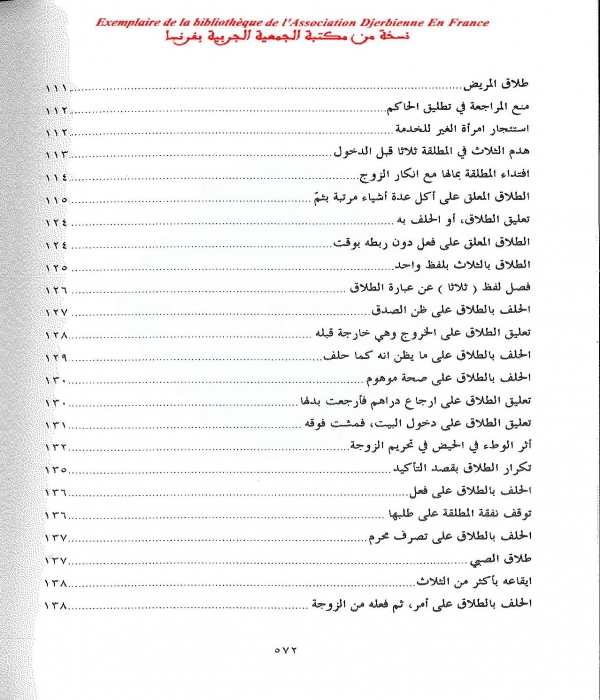 Exemplaire de la bibliothèque de l'Association Djerbienne En France
نسخة من مكتبة الجمعية الجربية بفرنسا
طلاق المريض ١١١
منع المراجعة في تطليق الحاكم ١١٢
استئجار امرأة الغير للخدمة ١١٢
هدم الثلاث في المطلقة ثلاثا قبل الدخول ١١٣
افتداء المطلقة بمالها مع انكار الزوج ١١٤
الطلاق المعلق على أكل عدة أشياء مرتبة بثمّ ١١٥
تعليق الطلاق، أو الحلف به ١٢٤
الطلاق المعلق على فعل دون ربطه بوقت ١٢٤
الطلاق بالثلاث بلفظ واحد ١٢٥
فصل لفظ ( ثلاثا ) عن عبارة الطلاق ١٢٦
الحلف بالطلاق على ظن الصدق ١٢٧
تعليق الطلاق على الخروج وهي خارجة قبله ١٢٨
الحلف بالطلاق على ما يظن انه كما حلف ١٢٩
الحلف بالطلاق على صحة موهوم ١٣٠
تعليق الطلاق على ارجاع دراهم فأرجعت بدلها ١٣٠
تعليق الطلاق على دخول البيت، فمشت فوقه ١٣١
أثر الوطء في الحيض في تحريم الزوجة ١٣٢
تكرار الطلاق بقصد التأكيد ١٣٥
الحلف بالطلاق على فعل ١٣٦
توقف نفقة المطلقة على طلبها ١٣٦
الحلف بالطلاق على تصرف محرم ١٣٧
طلاق الصبي ١٣٧
ايقاعه بأكثر من الثلاث ١٣٨
الحلف بالطلاق على أمر، ثم فعله من الزوجة ١٣٨
٥٧٢